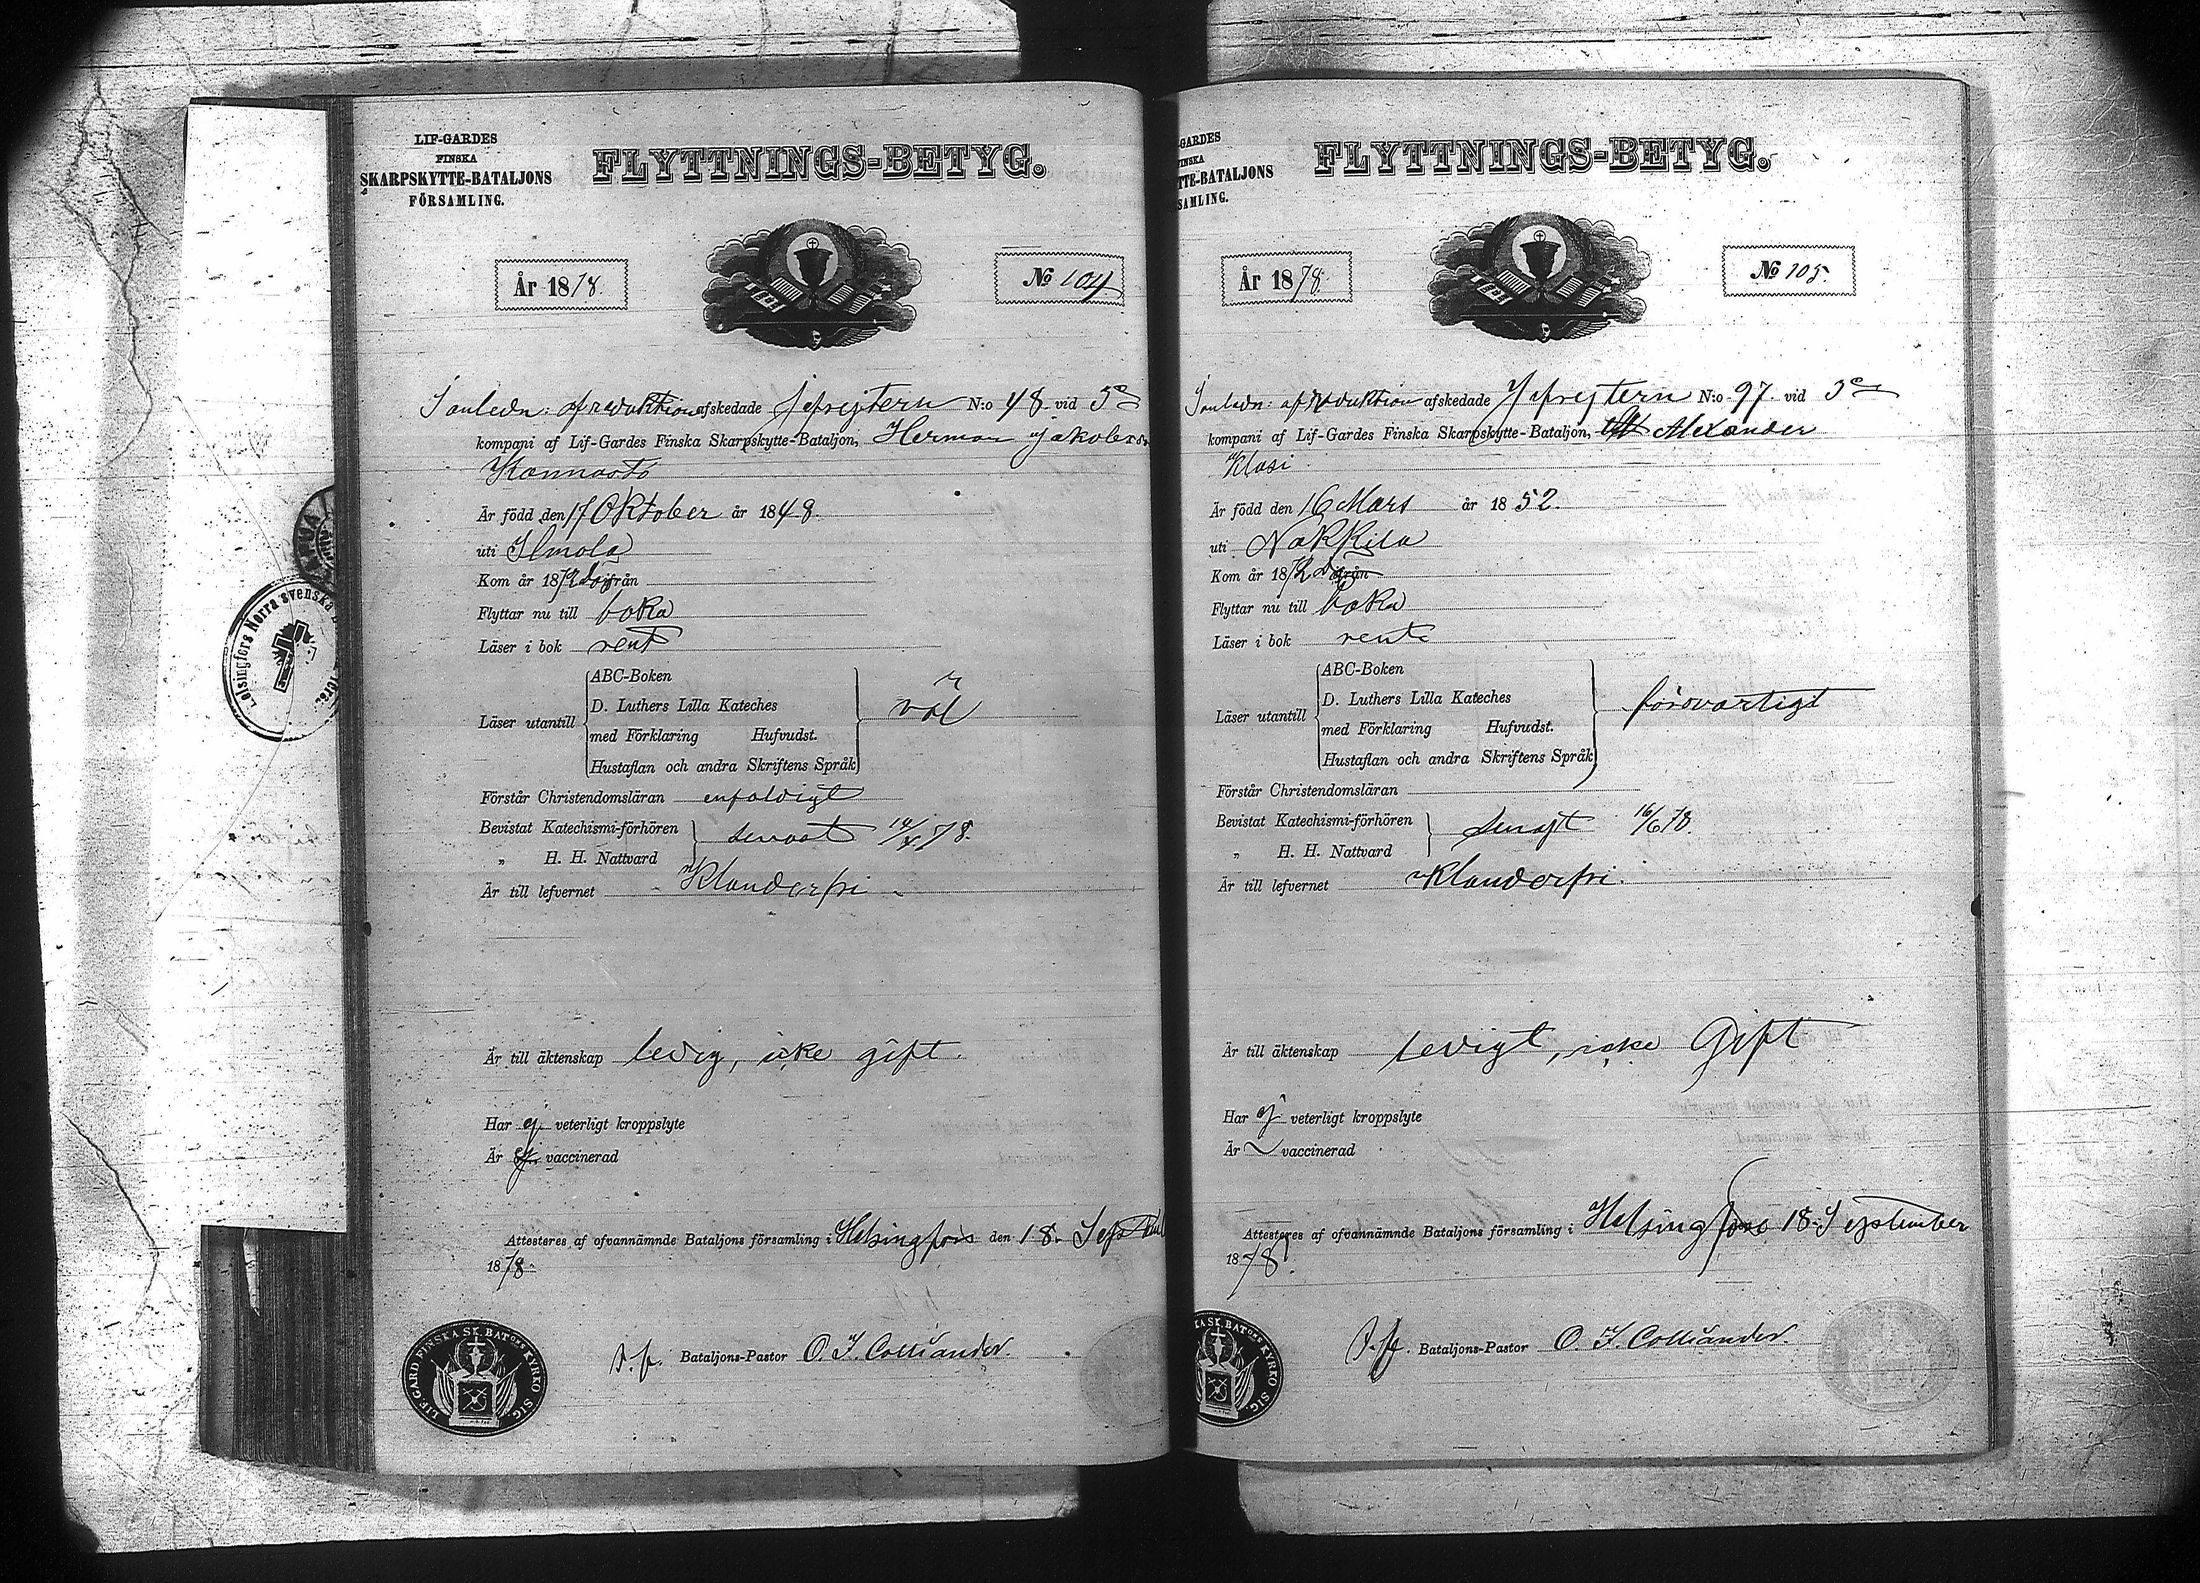 LIF-GARDES
FINSKA
SKARPSKYTTE-BATALJONS
FÖRSAMLING.
FLYTTNINGS-BETYG.
År 1878.
No 104
afskedade N:o 48. vid 5e
kompani af Lif-Gardes Finska Skarpskytte-Bataljon, Herman Jakobsson
Är född den 17 Oktober år 1848.
uti Ilmola
Kom år 1872 från
Flyttar nu till
Läser i bok rent
ABC-Boken
D. Luthers Lilla Kateches
Läser utantill
med Förklaring Hufvudst.
väl
Hustaflan och andra Skriftens Språk
Förstår Christendomsläran enfaldigt
Bevistat Katechismi-förhören
senast 78.
„ H. H. Nattvard
Är till lefvernet klanderfri
Är till äktenskap ledig, icke gift.
Har ej veterligt kroppslyte
Är vaccinerad
Attesteres af ofvannämnde Bataljons församling i Helsingfors den 18. Septemb
1878.
Bataljons-Pastor O. I. Colliander.
LIF. GARD. FINSKA SK. BATONS KYRKO SIG.
Helsingfors Norra svenska
GARDES
FINSKA
TTE-BATALJONS
SAMLING.
FLYTTNINGS-BETYG.
År 1878.
No 105.
afskedade N:o 97. vid 3e
kompani af Lif-Gardes Finska Skarpskytte-Bataljon, Alexander
Klasi
Är född den 16 Mars år 1852.
uti Nakkila
Kom år 1872 från
Flyttar nu till
Läser i bok rent
ABC-Boken
D. Luthers Lilla Kateches
Läser utantill
med Förklaring Hufvudst.
försvarligt
Hustaflan och andra Skriftens Språk
Förstår Christendomsläran
Bevistat Katechismi-förhören
senast 16/6 78.
„ H. H. Nattvard
Är till lefvernet klanderfri.
Är till äktenskap ledigt, icke Gift
Har ej veterligt kroppslyte
Är vaccinerad
Attesteres af ofvannämnde Bataljons församling i Helsingfors 18 September
1878.
Bataljons-Pastor O. I. Colliander.
KA SK. BATONS KYRKO SIG.